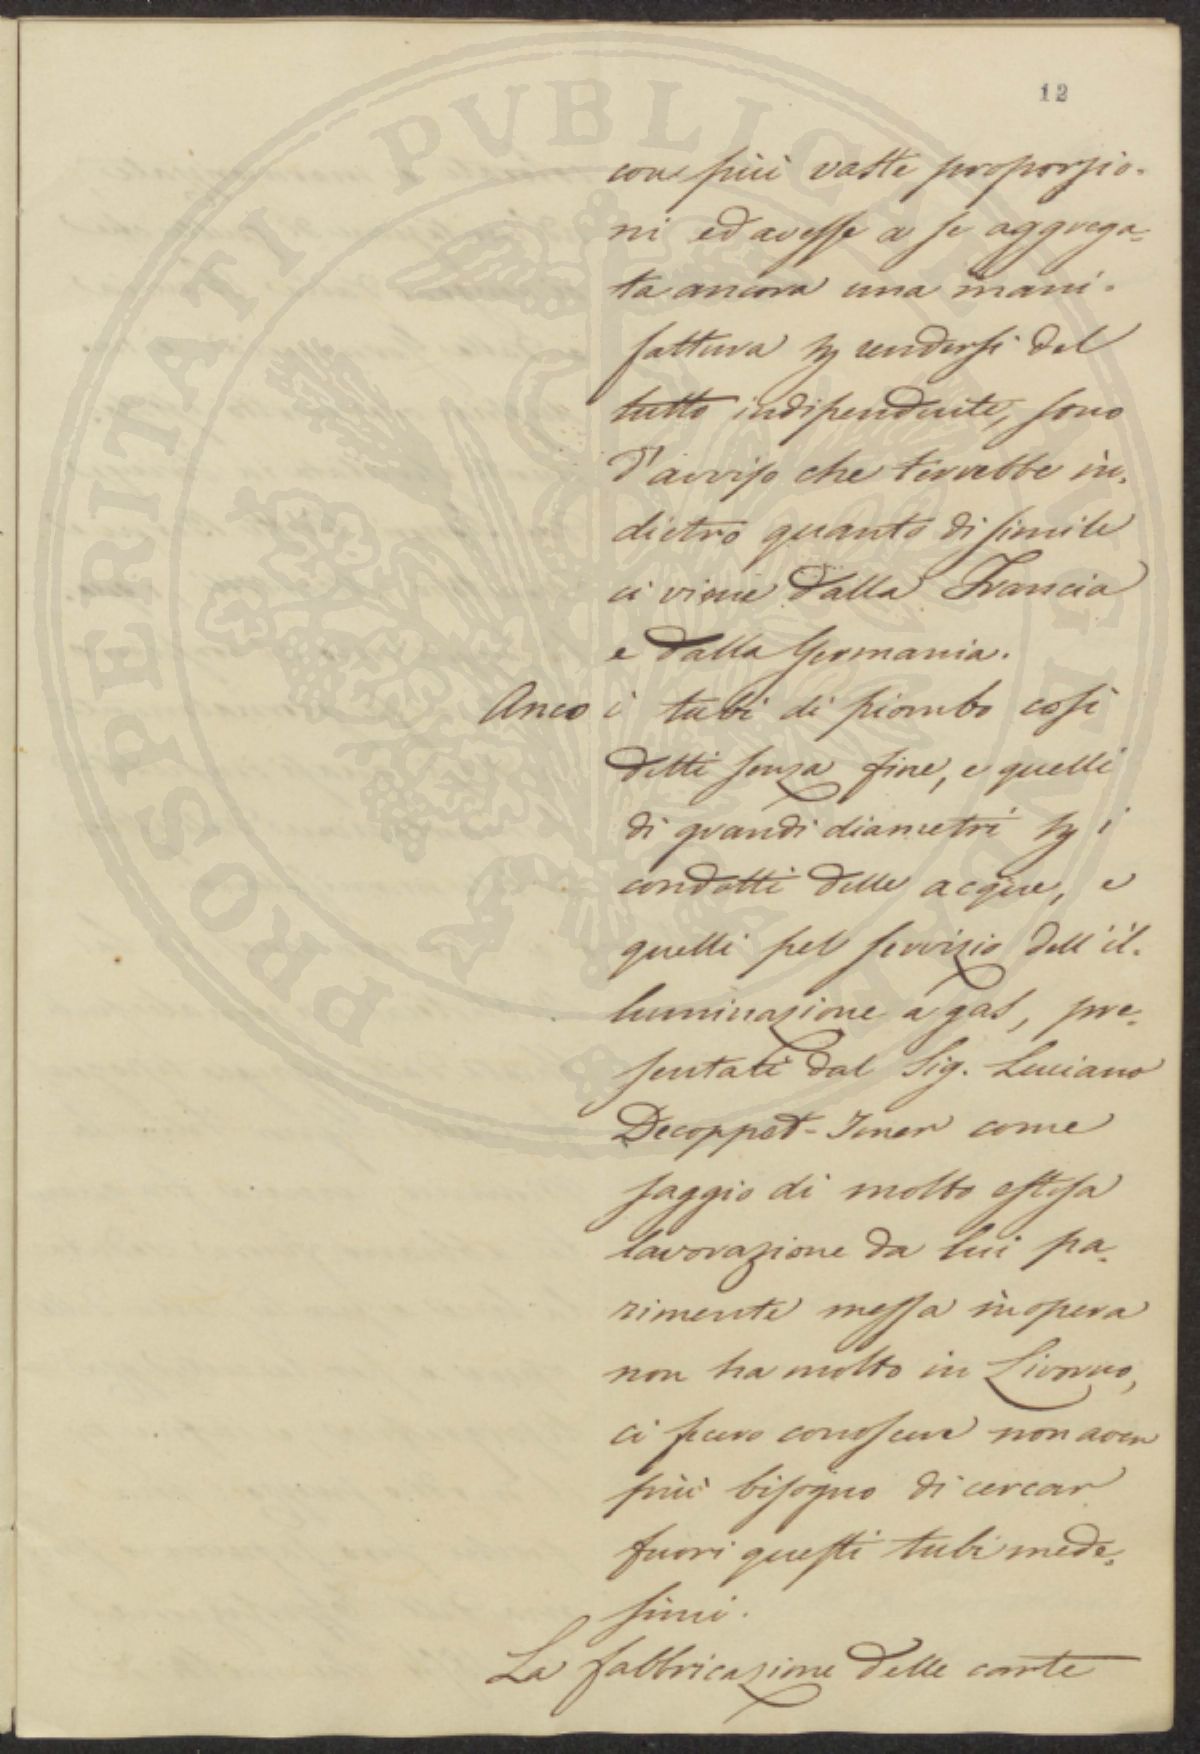 12
con più vaste proporzio-
ni ed avesse a se aggrega-
ta ancora una mani-
fattura p rendersi del
tutto indipendente, sono
d'avviso che terrebbe in-
dietro quanto di simile
ci viene dalla Francia
e dalla Germania.
Anco i tubi di piombo così
detti senza fine, e quelli
di grandi diametri p i
condotti delle acque, e
quelli pel servizio dell'il-
luminazione a gas, pre-
sentati dal Sig. Luciano
Decoppet-Joner come
saggio di molto estesa
lavorazione da lui pa-
rimente messa in opera
non ha molto in Livorno,
ci fecero conoscere non aver
più bisogno di cercar
fuori questi tubi mede-
simi.
La fabbricazione delle carte
PROSPERITATI PUBLICAE